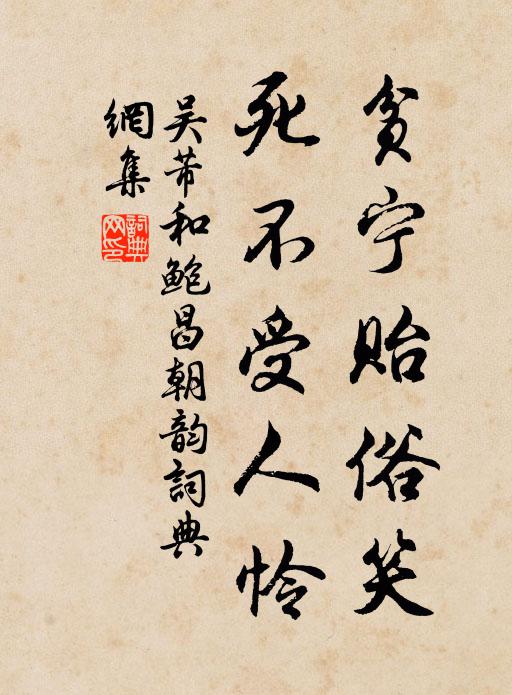 贫宁贻俗笑
死不受人怜
吴芾和鲍昌朝韵詞典
網集
詞典
网印